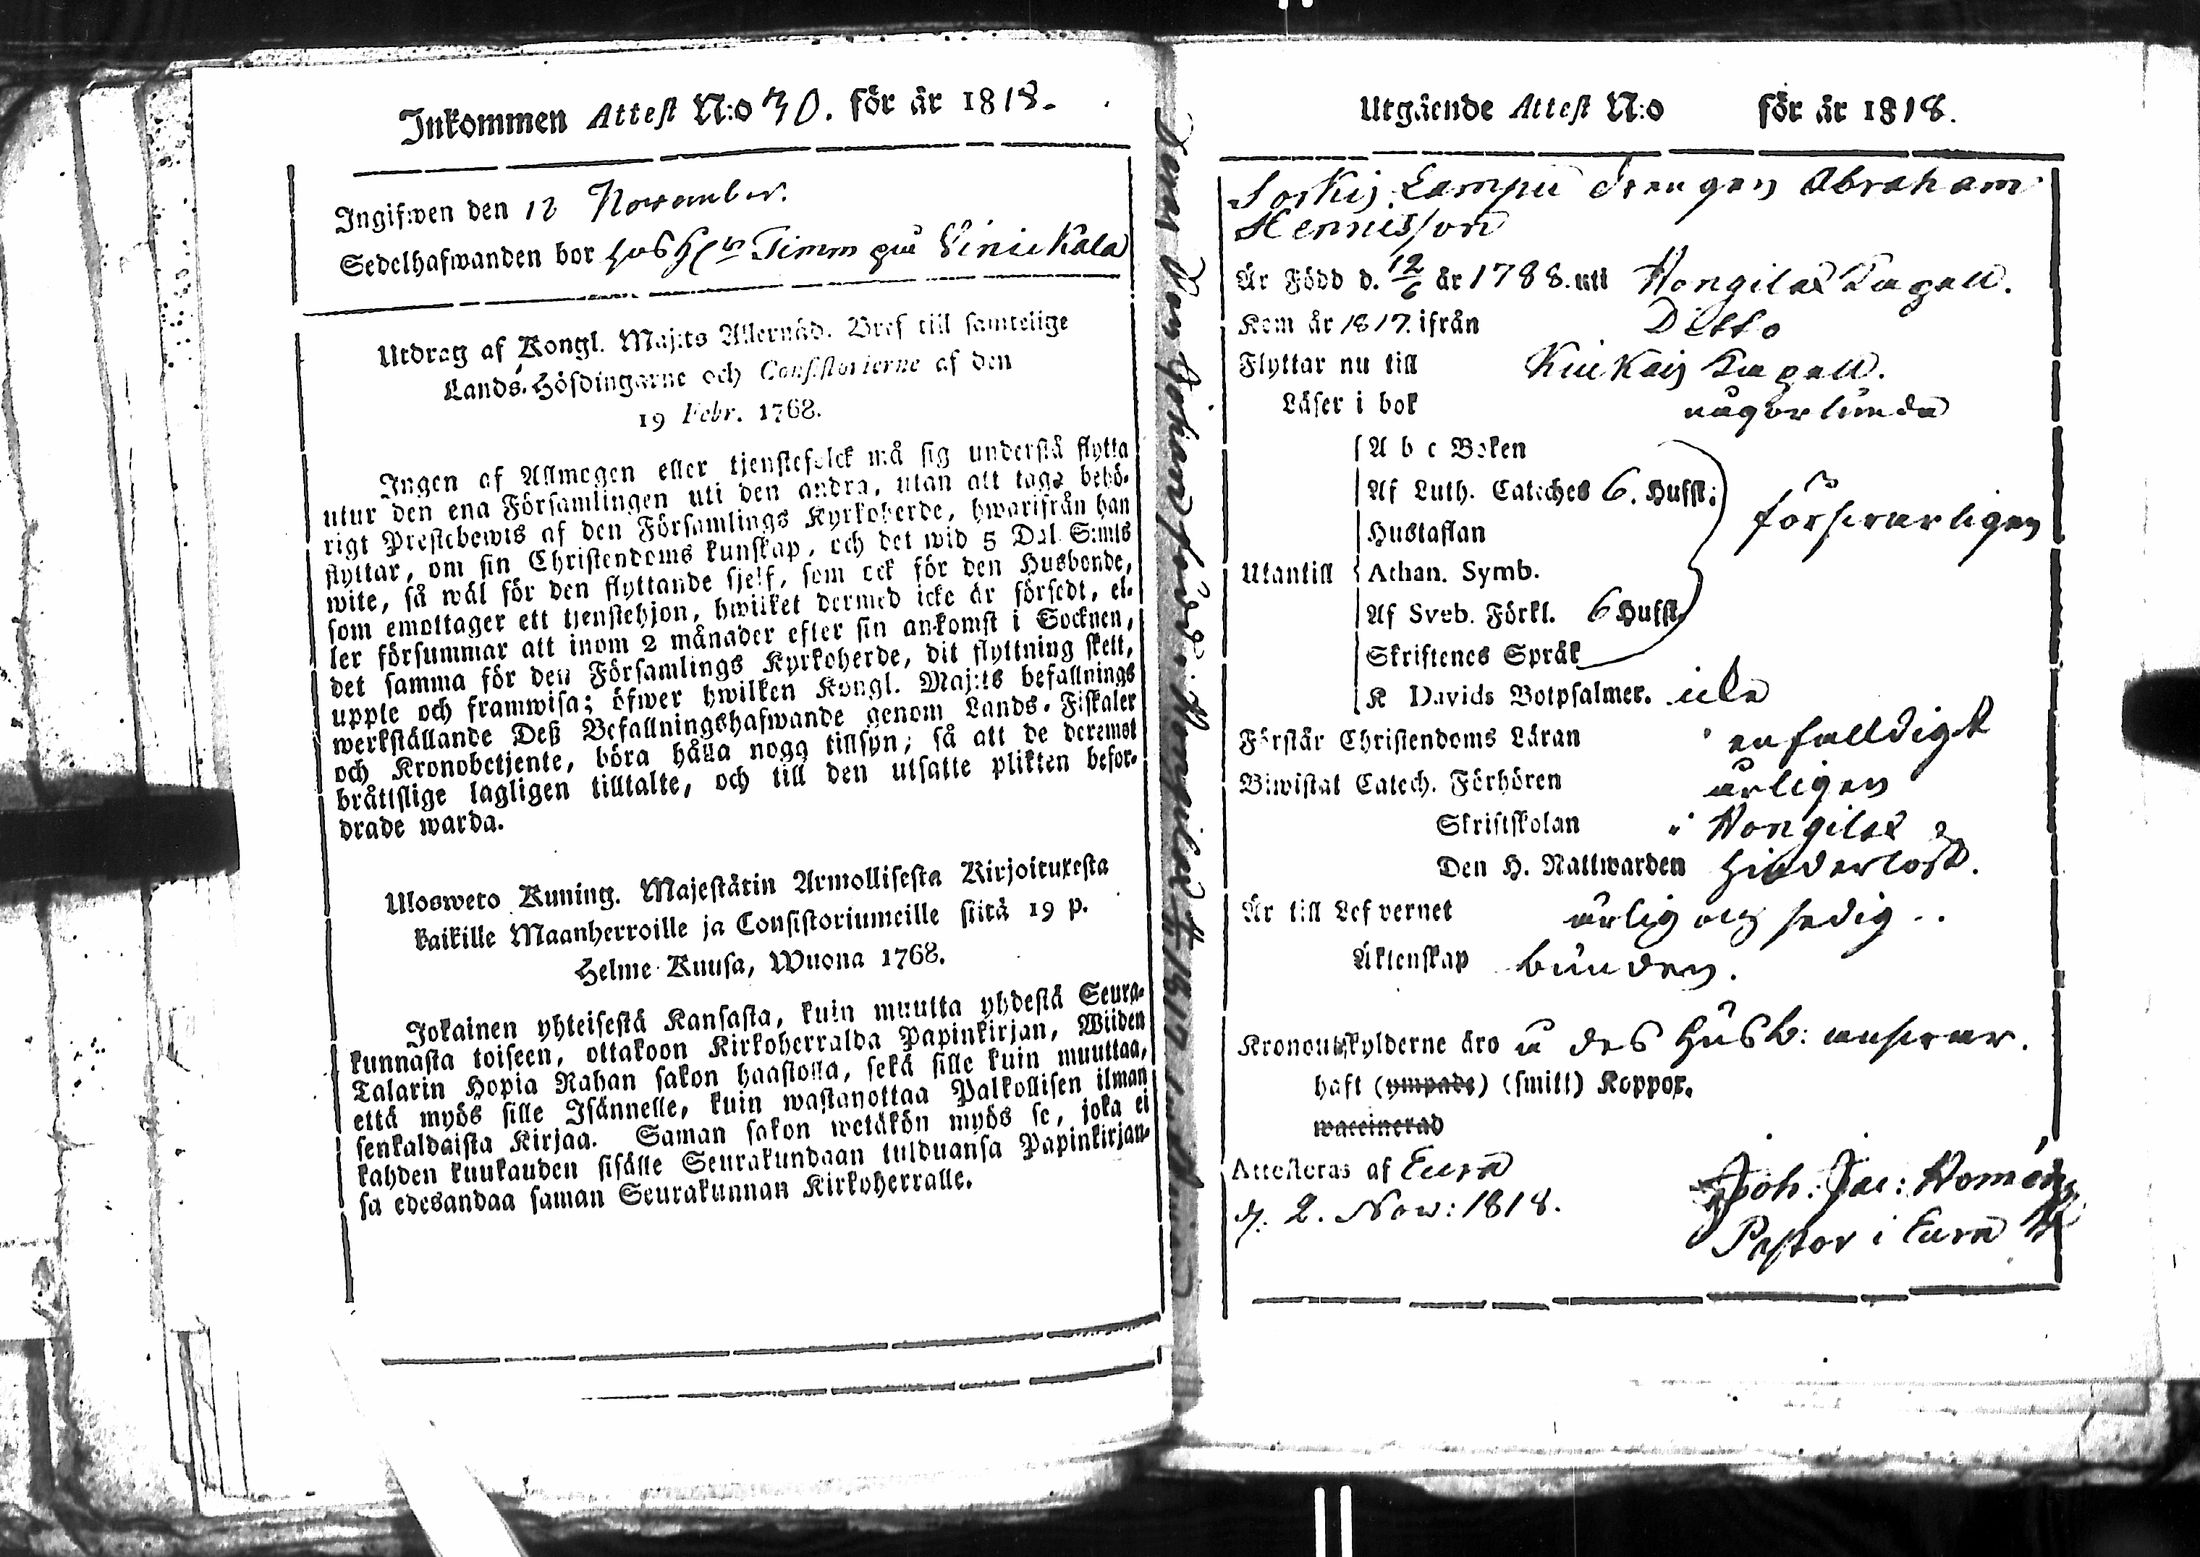 Inkommen Attest N:o 30. för år 1818.
Ingifwen den 12 November.
Sedelhafwanden bor hos Timm på Vinikala
Utdrag af Kongl. Maj:ts Allernåd. Bref till samtelige
Lands-Höfdingarne och Consistorierne af den
19 Febr. 1768.
Ingen af Allmogen eller tjenstefolck må sig understå flytta
utur den ena Församlingen uti den andra, utan att taga behö-
rigt Prestebewis af den Församlings Kyrkoherde, hwarifrån han
flyttar, om sin Christendoms kunskap, och det wid 5 Dal. S:mts
wite, så wäl för den flyttande sjelf, som ock för den Husbonde,
som emottager ett tjenstehjon, hwilket dermed icke är försedt, el-
ler försummar att inom 2 månader efter sin ankomst i Socknen,
det samma för den Församlings Kyrkoherde, dit flyttning skett,
uppte och framwisa; öfwer hwilken Kongl. Maj:ts befallnings
werkställande Deß Befallningshafwande genom Lands-Fiskaler
och Kronobetjente, böra hålla nogg tillsyn; så att de deremot
bråttslige lagligen tilltalte, och till den utsatte plikten befor-
drade warda.
Ulosweto Kuning. Majestätin Armollisesta Kirjoituxesta
kaikille Maanherroille ja Consistoriumeille siitä 19 p.
Helme-Kuusa, Wuona 1768.
Jokainen yhteisestä Kansasta, kuin muutta yhdestä Seura-
kunnasta toiseen, ottakoon Kirkoherralda Papinkirjan, Wiiden
Talarin Hopia Rahan sakon haastolla, sekä sille kuin muuttaa,
että myös sille Isännelle, kuin wastanottaa Palkollisen ilman
senkaldaista Kirjaa. Saman sakon wetäkön myös se, joka ei
kahden kuukauden sisälle Seurakundaan tulduansa Papinkirjan-
sa edesandaa saman Seurakunnan Kirkoherralle.
Utgående Attest N:o för år 1818.
Sorkis Lampu Drengen Abraham
Hennisson
Är Född d. 12/6 år 1788. uti Hongilax Capell.
Kom år 1817. ifrån Ditto
Flyttar nu till Kiukais Capell.
Läser i bok någorlunda
A b c Boken
Af Luth. Cateches 6. Hufst:
Hustaflan
försvarligen
Utantill Athan. Symb.
Af Sveb. Förkl. 6 Hufst.
Skriftenes Språk
K Davids Botpsalmer. icke
Förstår Christendoms Läran enfalldigt
Biwistat Catech. Förhören årligen
Skriftskolan i Hongilax
Den H. Nattwarden hinderlöst.
Är till Lefvernet ärlig och sedig..
Äktenskap bunden.
Kronoutskylderne äro å des Husb: ansvar.
haft (ympade) (smitt) Koppor.
waccinerad
Attesteras af Eura
d. 2. Nov: 1818.
Joh: Jac: Homén
Pastor i Eura